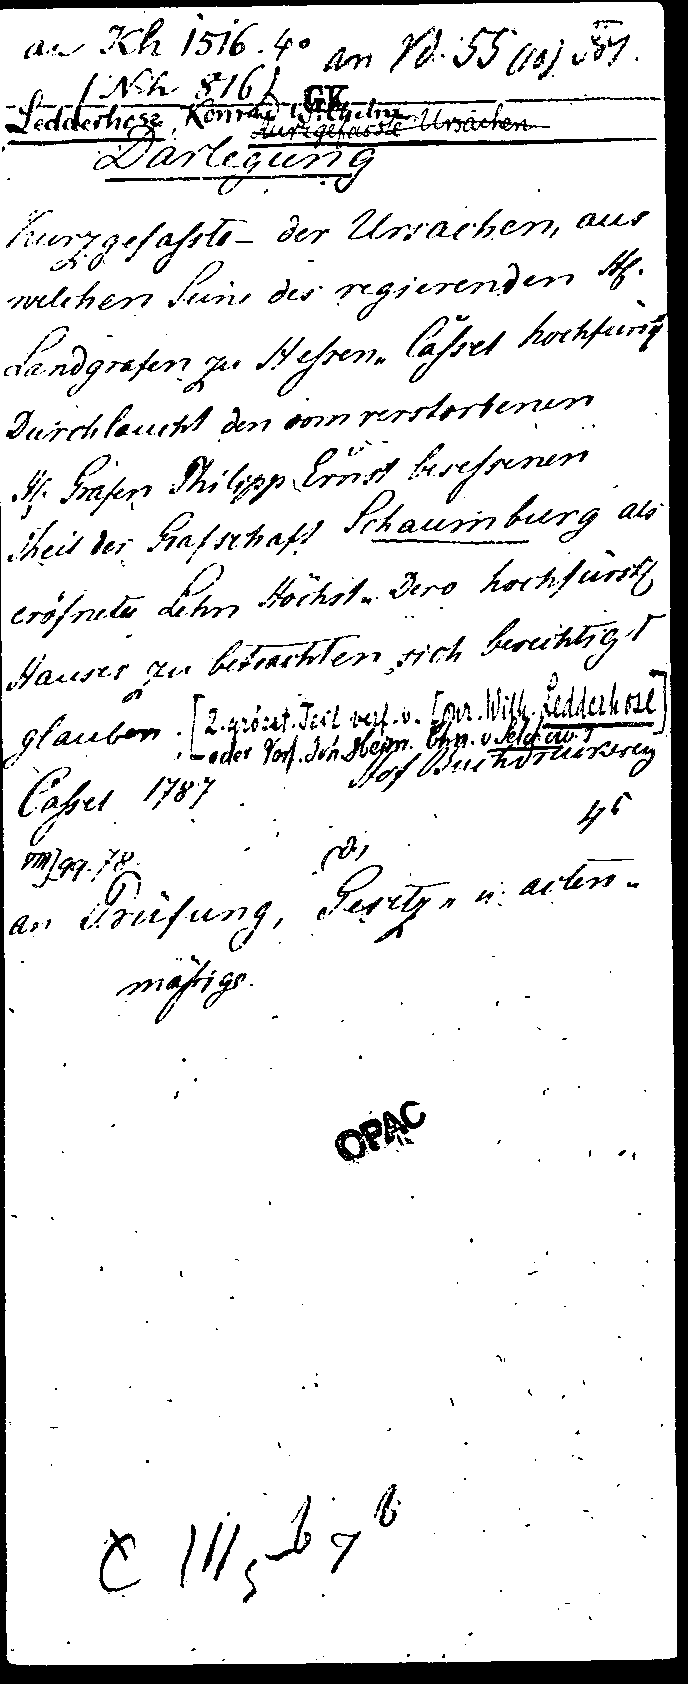 an Kh 1516.4° an Vd. 55 (10)
(Nh 816) GK
Ledderhose, Konrad Wilhelm
Kurzgefasste Ursachen
Darlegung
Kurzgefaßte – der Ursachen, aus
welchen Seine des regierenden H.
Landgrafen zu Hessen„ Cassel hochfürstl
Durchlaucht den vom verstorbenen
H. Grafen Philipp Ernst besessenen
Theil der Grafschaft Schaumburg als
eröfnetes Lehn Höchst„ Dero hochfürstl
Hauses zu betrachten sich berechtigt
glauben. [2. grösst. Teil verf. v. Conr. Wilh. Ledderhose]
oder Verf. Joh. Heinr. Chn. v. Selchow?
Hof Buchdruckerey
Cassel 1787
4°
99.78.
an Prüfung, Gesetz„ u. acten„
mäßige.
OPAC
C III 5 b 7 b